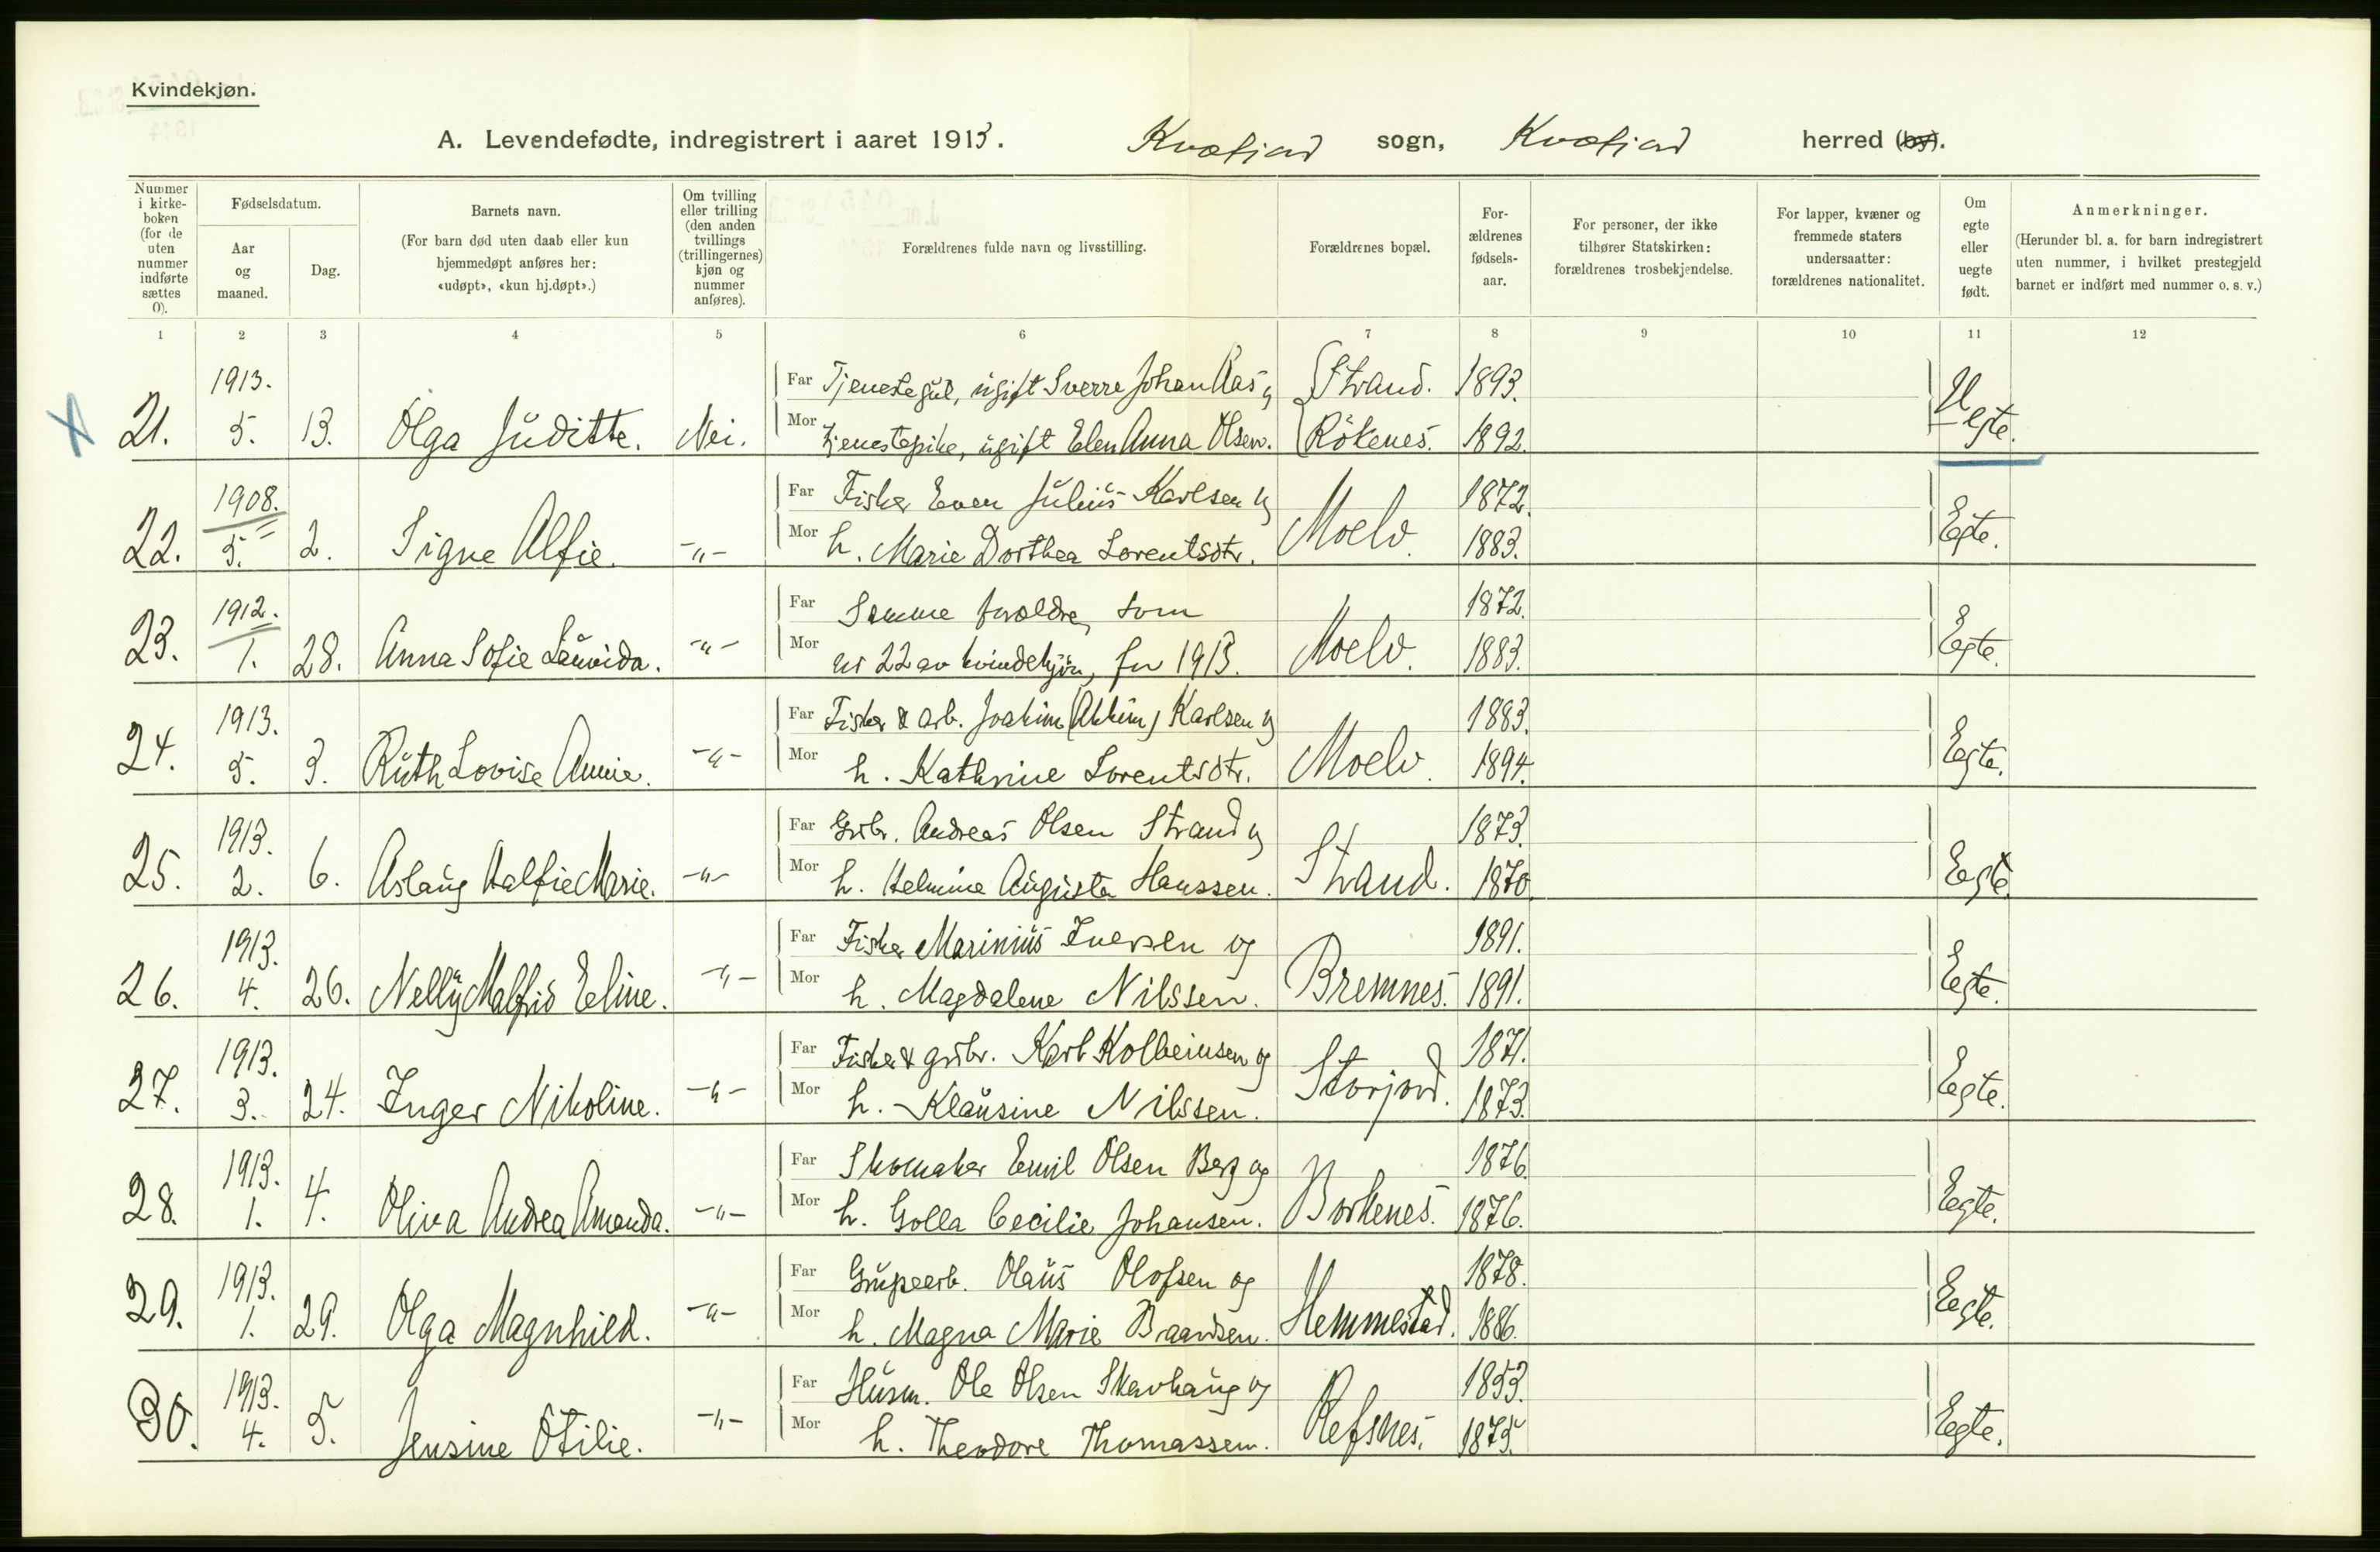 Kvindekjøn.
A. Levendefødte, indregistrert i aaret 1913. Kvæfjord sogn, Kvæfjord herred (by).
Nummer i kirke-boken (for de uten nummer indførte sættes 0).
Fødselsdatum.
Aar og maaned.
Dag.
Barnets navn.
(For barn død uten daab eller kun hjemmedøpt anføres her: «udøpt», «kun hj.døpt».)
Om tvilling eller trilling (den anden tvillings (trillingernes) kjøn og nummer anføres).
Forældrenes fulde navn og livsstilling.
Forældrenes bopæl.
For-ældrenes fødsels-aar.
For personer, der ikke tilhører Statskirken: forældrenes trosbekjendelse.
For lapper, kvæner og fremmede staters undersaatter: forældrenes nationalitet.
Om egte eller uegte født.
Anmerkninger.
(Herunder bl. a. for barn indregistrert uten nummer, i hvilket prestegjeld barnet er indført med nummer o. s. v.)
1 2 3 4 5 6 7 8 9 10 11 12
1913. Far Tjenestegut, ugift Sverre Johan Aas og Strand. 1893.
21. 5. 13. Olga Juditte. Nei. Mor tjenestepike, ugift Elen Anna Olsen. Rökenes. 1892. Uegte.
1908. Far Fisker Even Julius Karlsen og 1872.
22. 5. 2. Signe Alfie. -"- Mor h. Marie Dorthea Lorentsdtr. Moelv. 1883. Egte.
1912. Far Samme forældre, som 1872.
23. 1. 28. Anna Sofie Lauvida. -"- Mor nr 22 av kvindekjön, for 1913. Moelv. 1883. Egte.
1913. Far Fisker & arb. Joakim (Akkim) Karlsen og 1883.
24. 5. 3. Ruth Lovise Annie. -"- Mor h. Kathrine Lorentsdtr. Moelv. 1894. Egte.
1913. Far Grdbr. Andreas Olsen Strand og 1873.
25. 2. 6. Aslaug Halfie Marie. -"- Mor h. Helmine Augusta Hanssen. Strand. 1870. Egte.
1913. Far Fisker Marinius Iversen og 1891.
26. 4. 26. Nelly Malfrid Eeline. -"- Mor h. Magdalene Nilssen. Bremnes. 1891. Egte.
1913. Far Fisker & grdbr. Karl Kolbeinsen og 1871.
27. 3. 24. Inger Nikoline. -"- Mor h. Klausine Nilssen. Storjord. 1873. Egte.
1913. Far Skomaker Emil Olsen Berg og 1876.
28. 1. 4. Oliva Andrea Amanda. -"- Mor h. Golla Cecilie Johansen. Borkenes. 1876. Egte.
1913. Far Grubearb. Olaus Olofsen og 1878.
29. 1. 29. Olga Magnhild. -"- Mor h. Magna Marie Baardsen. Hemmestad. 1886. Egte.
1913. Far Husm. Ole Olsen Skavhaug og 1853.
30. 4. 5. Jensine Otilie. -"- Mor h. Theodore Thomassen. Refsnes. 1875. Egte.